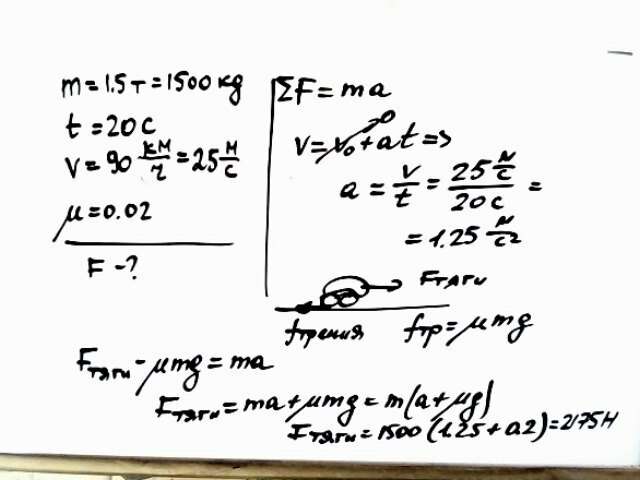 m = 1.5 т = 1500 kg
t = 20 c
v = 90 км/ч = 25 м/с
μ = 0.02
F - ?
ΣF = ma
v = v₀ + at =>
0
a = v/t = 25 м/с / 20 c =
= 1.25 м/с²
Fтяги
fтрения fтр = μmg
Fтяги - μmg = ma
Fтяги = ma + μmg = m(a + μg)
Fтяги = 1500 (1.25 + 0.2) = 2175 H